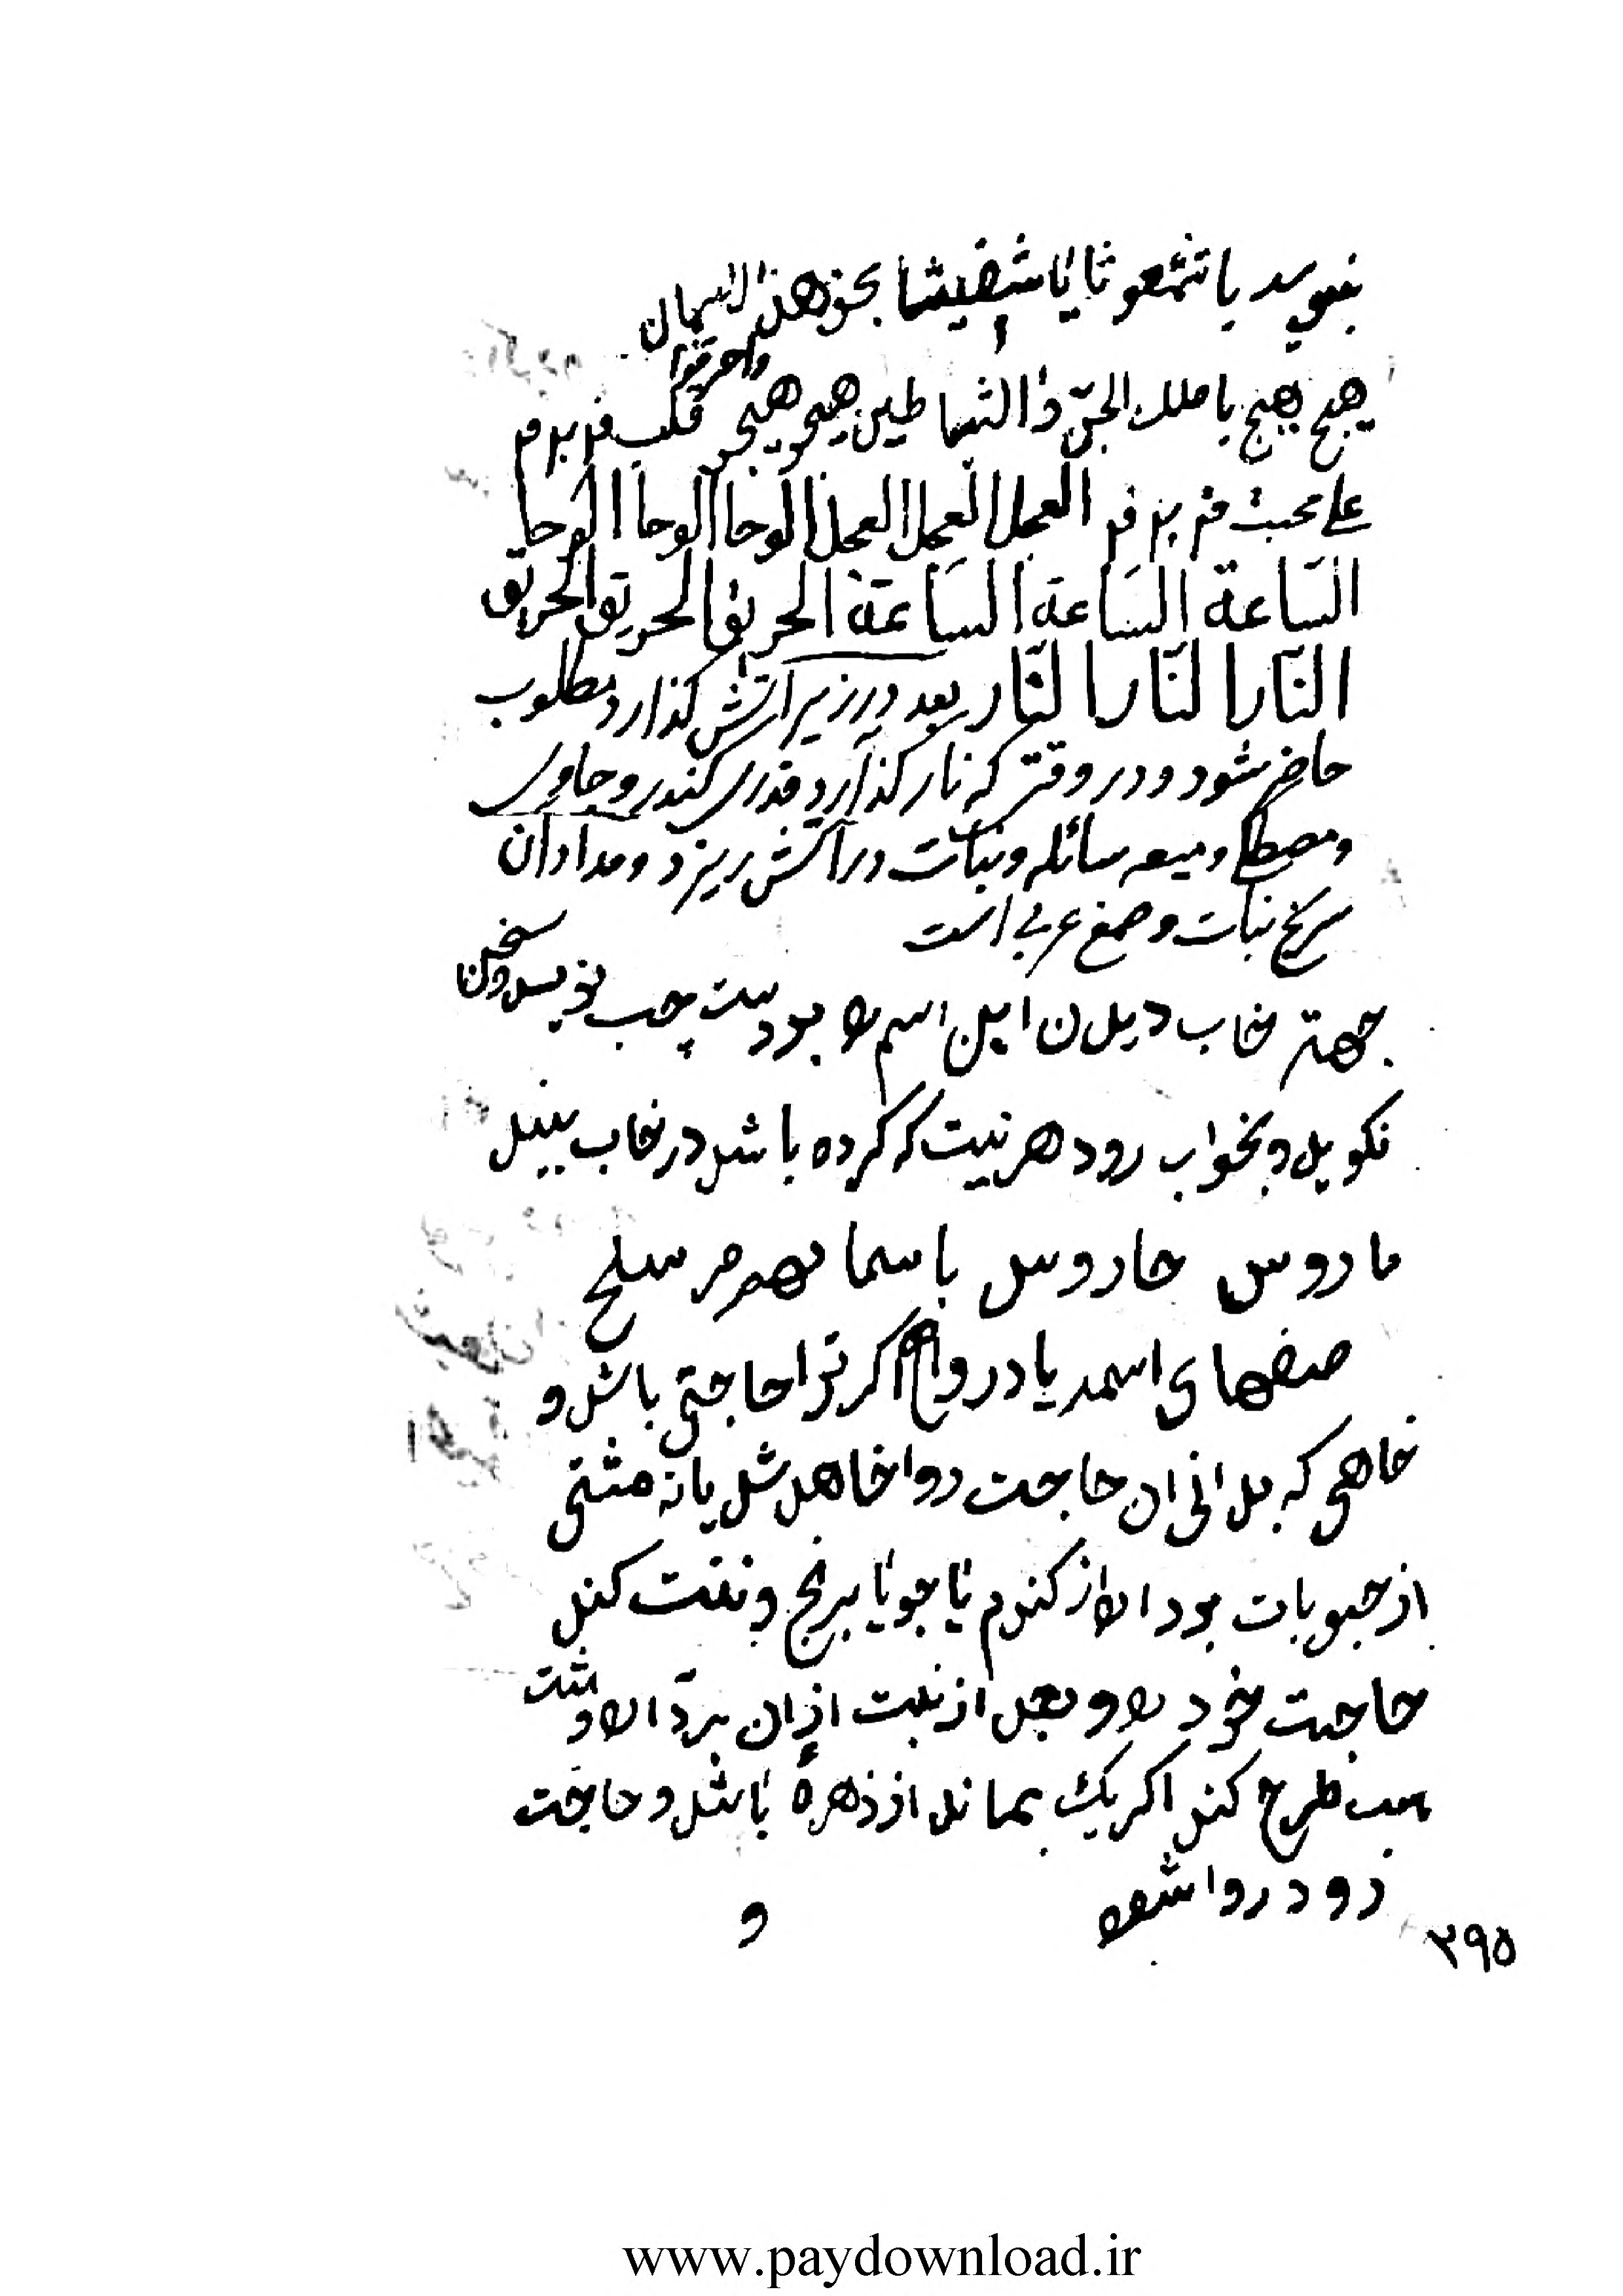 بنویسد یا شمعوثا یا شقیشا بحق هذا السیمان
هیج هیج یا ملک الجن والشیاطین هیجو هیجو واحرقوا قلب
علی محبت العجل العجل العجل الوحا الوحا الوحا
الساعة الساعة الساعة الحریق الحریق الحریق
النّار النّار النّار بعد در زیر آتش گذارد مطلوب
حاضر شود و در وقتی که نار گذارد قدری کندر و جاوی
و مصطکی و میعه سائله و نبات در آتش ریزد و مداد آن
سرخ نبات و صمغ عربی است
جهة خاب دیدن این اسم را بر دست چپ نویس و سخن
نکوید و بخواب رود هر نیت که کرده باشد در خاب بیند
ماروس حاروس باسما
یا در و اگر ترا حاجتی باشد و
خاهی که بدانی ان حاجت روا خاهد شد یا نه مشتی
از حبوبات بردار از کندم یا جو یا برنج و نیت کند
حاجت خود را و بعد از نیت از ان بردار و هشت
هشت طرح کند اکر یک بماند از زهره باشد و حاجت
زود روا شود
و
۳۹۵
www.paydownload.ir